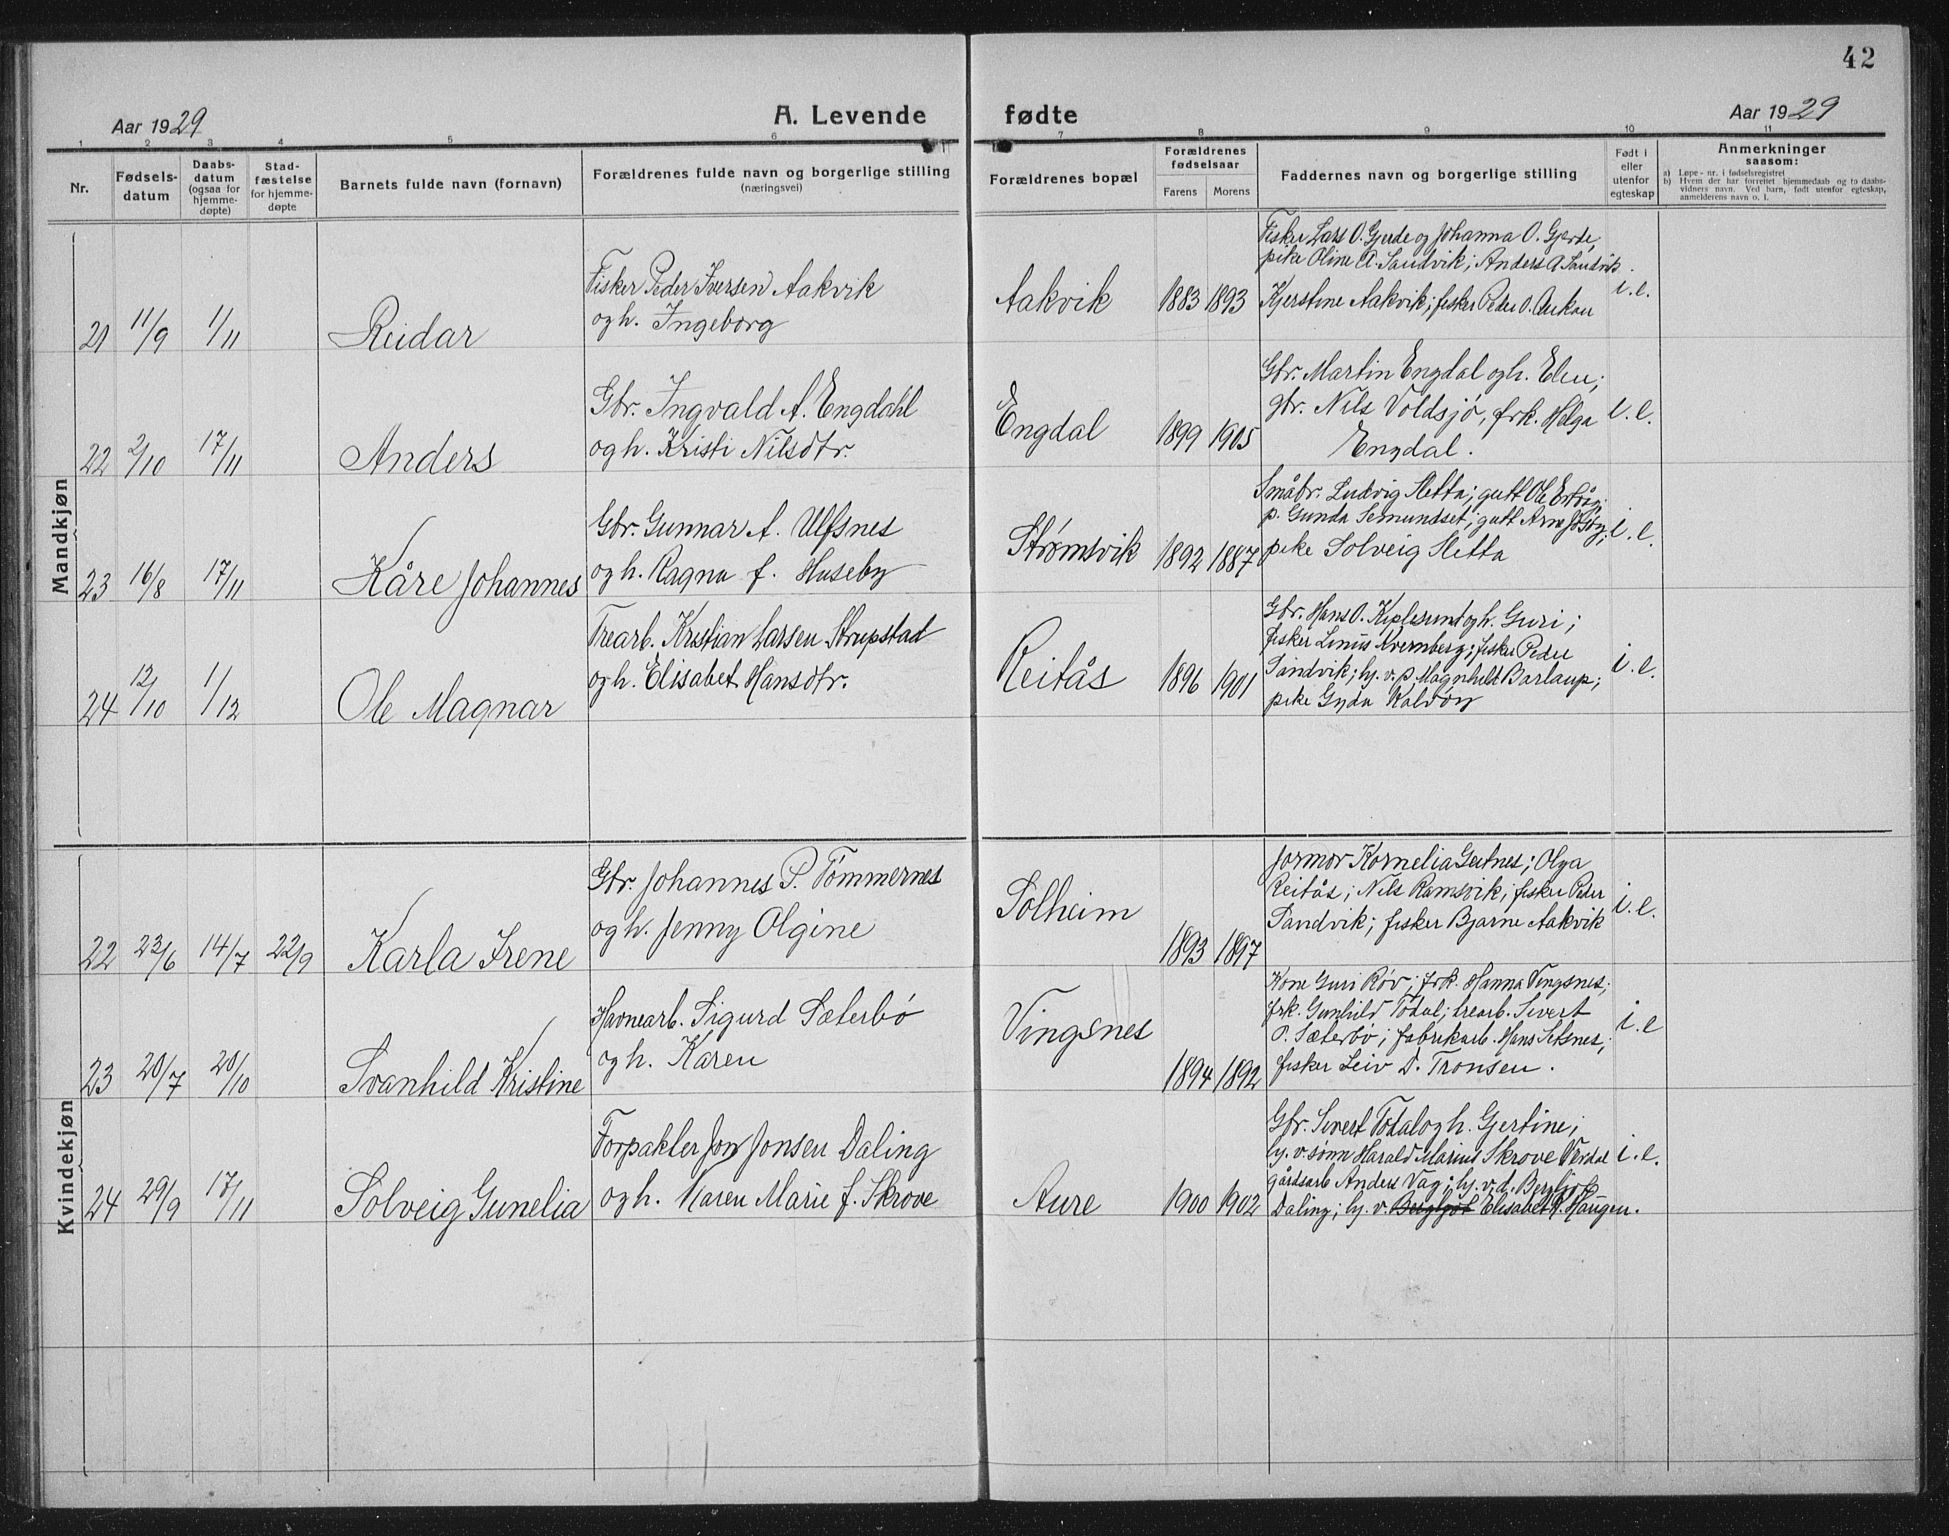 42
Aar 1929
A. Levende fødte
Aar 1929
1 2 3 4 5 6 7 8 9 10 11
Nr.
Fødsels-
datum
Daabs-
datum
(ogsaa for
hjemme-
døpte)
Stad-
fæstelse
for hjemme-
døpte
Barnets fulde navn (fornavn)
Forældrenes fulde navn og borgerlige stilling
(næringsvei)
Forældrenes bopæl
Forældrenes
fødselsaar
Farens Morens
Faddernes navn og borgerlige stilling
Født i
eller
utenfor
egteskap
Anmerkninger
saasom:
a) Løpe-nr. i fødselsregistret
b) Hvem der har forrettet hjemmedaab og to daabs-
vidners navn. Ved barn, født utenfor egteskap,
anmelderens navn o. l.
Mandkjøn
21 11/9 1/11 Reidar
Fisker Peder Iversen Aakvik
og h. Ingeborg
Aakvik 1883 1893
Fisker Lars O. Gjerde og Johanna O. Gjerde,
pike Oline A. Sandvik; Anders A. Sandvik
Kjerstine Aakvik; fisker Peder O.
i. e.
22 2/10 17/11 Anders
Gbr. Ingvald A. Engdahl
og h. Kristi Nilsdtr.
Engdal 1899 1905
Gbr. Martin Engdal og h. Elen;
gbr. Nils Voldsjø, frk. Helga
Engdal.
i. e.
23 16/8 17/11 Kåre Johannes
Gbr. Gunnar A. Ulfsnes
og h. Ragna f. Huseby
Strømsvik 1892 1887
Småbr. Ludvig Sletta; gutt Ole
p. Gunda Semundset; gutt Arne
pike Solveig Sletta
i. e.
24 12/10 1/12 Ole Magnar
Trearb. Kristian Larsen Strupstad
og h. Elisabet Hansdtr.
Reitås 1896 1901
Gbr. Hans O. Kiplesund og h. Guri;
fisker Linus Kvernberg; fisker Peder
Sandvik; hj. v. p. Magnhild Barlaup;
pike Gyda Kaldøy
i. e.
Kvindekjøn
22 23/6 14/7 22/9 Karla Irene
Gbr. Johannes P. Tømmernes
og h. Jenny Olgine
Solheim 1893 1897
formor Kornelia Geitnes; Olga
Reitås; Nils Ramsvik; fisker Peder
Sandvik; fisker Bjarne Aakvik
i. e.
23 20/7 20/10 Svanhild Kristine
Havnearb. Sigurd Sæterbø
og h. Karen
Vingsnes 1894 1892
Kone Guri Røv; frk. Hanna Vingsnes;
frk. Gunhild Todal; trearb. Sivert
P. Sæterbø; fabrikarb. Hans Setsnes;
fisker Leiv D. Tronsen.
i. e
24 29/9 17/11 Solveig Gunelia
Forpakter Jon Jonsen Daling
og h. Karen Marie f. Skrove
Aure 1900 1902
Gbr. Sivert Todal og h. Gjertine;
hj. v. sønn Harald Marius Skrove Verdal
gårdsarb Anders Vag; hj. v. d. Bergljot
Daling; hj. v. Bergljot Elisabet R. Haugen.
i. e.